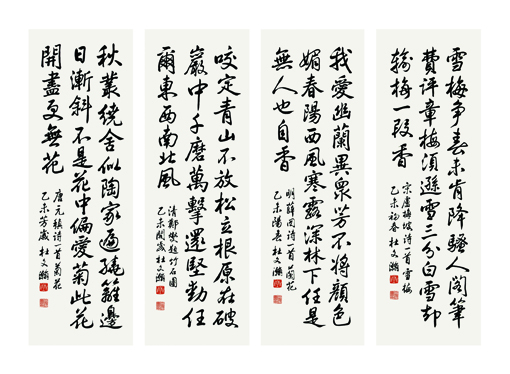 雪梅争春未肯降騷人閣筆
費評章梅須遜雪三分白雪却
輸梅一段香
宋盧梅坡詩一首雪梅
乙未初春杜文瀚
我愛幽蘭異衆芳不將顏色
媚春陽西風寒露深林下任是
無人也自香
明薛网詩一首蘭花
乙未陽春杜文瀚
咬定青山不放松立根原在破
巖中千磨萬擊還堅勁任
爾東西南北風
清鄭燮題竹石圖
乙未歲杜文瀚
秋叢繞舍似陶家遍繞籬邊
日漸斜不是花中偏愛菊此花
開盡更無花
唐元稹詩一首菊花
乙未芳歲杜文瀚